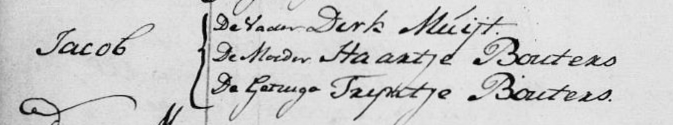 De Vader Derk Muijt.
Jacob De Moeder Haartje Bouters
De Getuige Trijntje Bouters.